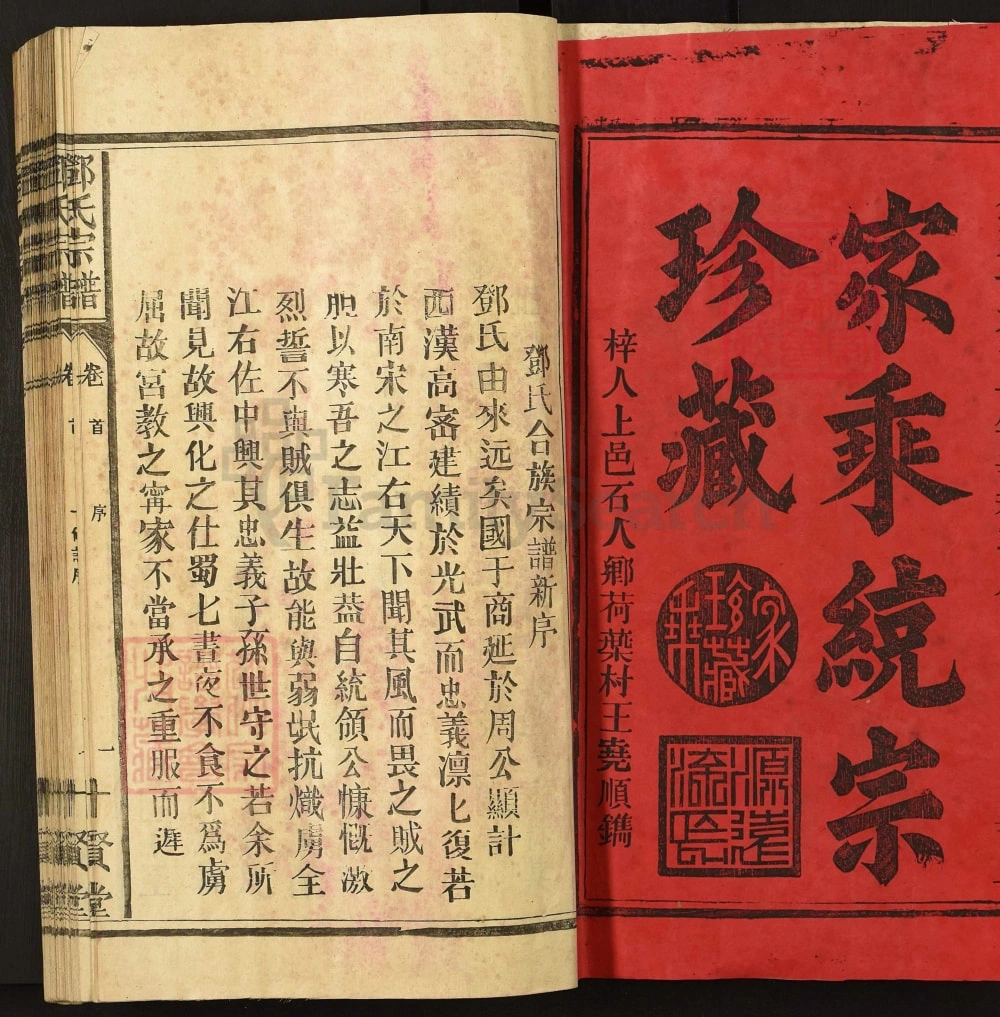 家乘統宗
珍藏
家珍藏
源遠流長
梓人上邑石人鄉荷葉村王堯順鐫
鄧氏合族宗譜新序
鄧氏由來远矣國于商延於周公顯計
西漢高密建績於光武而忠義凛匕復若
於南宋之江右天下聞其風而畏之賊之
胆以寒吾之志益壯葢自統領公慷慨激
烈誓不與賊俱生故能與弱氓抗熾虏全
江右佐中興其忠義子孫世守之若余所
聞見故興化之仕蜀匕晝夜不食不爲虜
屈故宮教之寗家不當承之重服而遲
鄧氏宗譜
卷首
序
一
十賢堂
FamilySearch